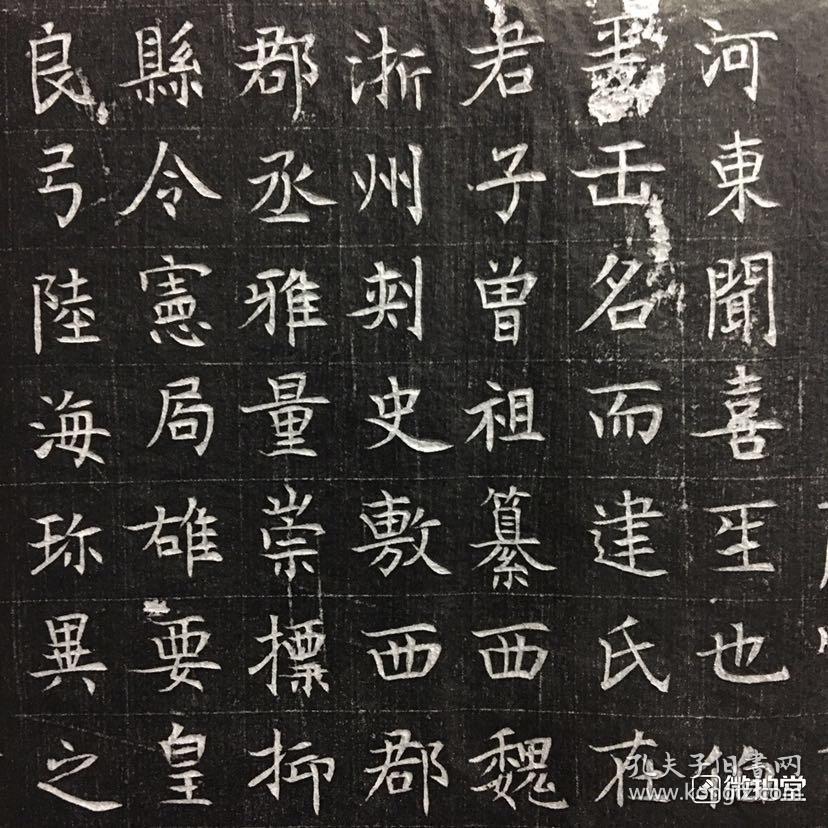 河東聞喜𤯔也
名而建氏
君子曾祖纂西魏
浙州刺史敷西郡
郡丞雅量崇摽抑
縣令憲局雄要皇
良弓陸海珎異之
孔夫子旧书网
微拍堂